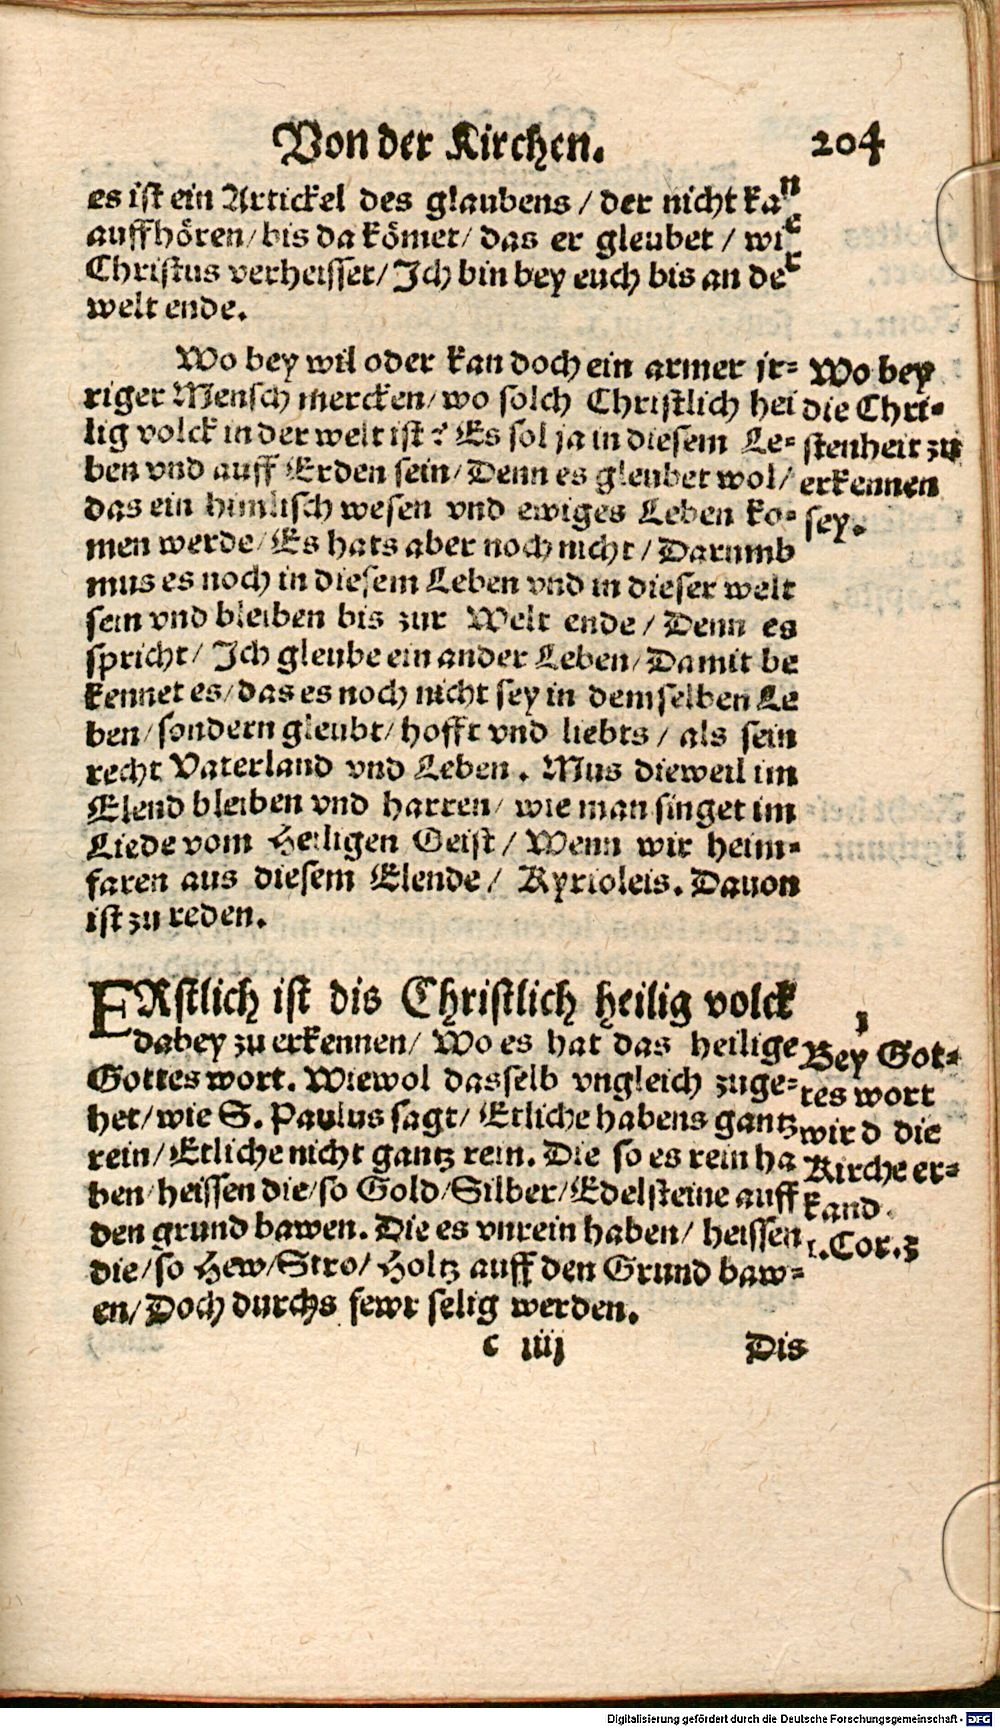 Von der Kirchen. 204
es ist ein Artickel des glaubens / der nicht kan
auffhören / bis da kömet / das er gleubet / wie
Christus verheisset / Ich bin bey euch bis an der
welt ende.
Wo bey wil oder kan doch ein armer jr-
riger Mensch mercken / wo solch Christlich hei
lig volck in der welt ist? Es sol ja in diesem Le-
ben vnd auff Erden sein / Denn es gleubet wol /
das ein himlisch wesen vnd ewiges Leben ko-
men werde / Es hats aber noch nicht / Darumb
mus es noch in diesem Leben vnd in dieser welt
sein vnd bleiben bis zur Welt ende / Denn es
spricht / Ich gleube ein ander Leben / Damit be
kennet es / das es noch nicht sey in demselben Le
ben / sondern gleubt / hofft vnd liebts / als sein
recht Vaterland vnd Leben. Mus dieweil im
Elend bleiben vnd harren / wie man singet im
Liede vom Heiligen Geist / Wenn wir heim-
faren aus diesem Elende / Kyrioleis. Dauon
ist zu reden.
Wo bey
die Chri-
stenheit zu
erkennen
sey.
ERstlich ist dis Christlich heilig volck
dabey zu erkennen / Wo es hat das heilige
Gottes wort. Wiewol dasselb vngleich zuge-
het / wie S. Paulus sagt / Etliche habens gantz
rein / Etliche nicht gantz rein. Die so es rein ha
ben / heissen die / so Gold / Silber / Edelsteine auff
den grund bawen. Die es vnrein haben / heissen
die / so Hew / Stro / Holtz auff den Grund baw-
en / Doch durchs fewr selig werden.
1
Bey Got-
tes wort
wird die
Kirche er-
kand.
1. Cor. 3
c iiij Dis
Digitalisierung gefördert durch die Deutsche Forschungsgemeinschaft - DFG